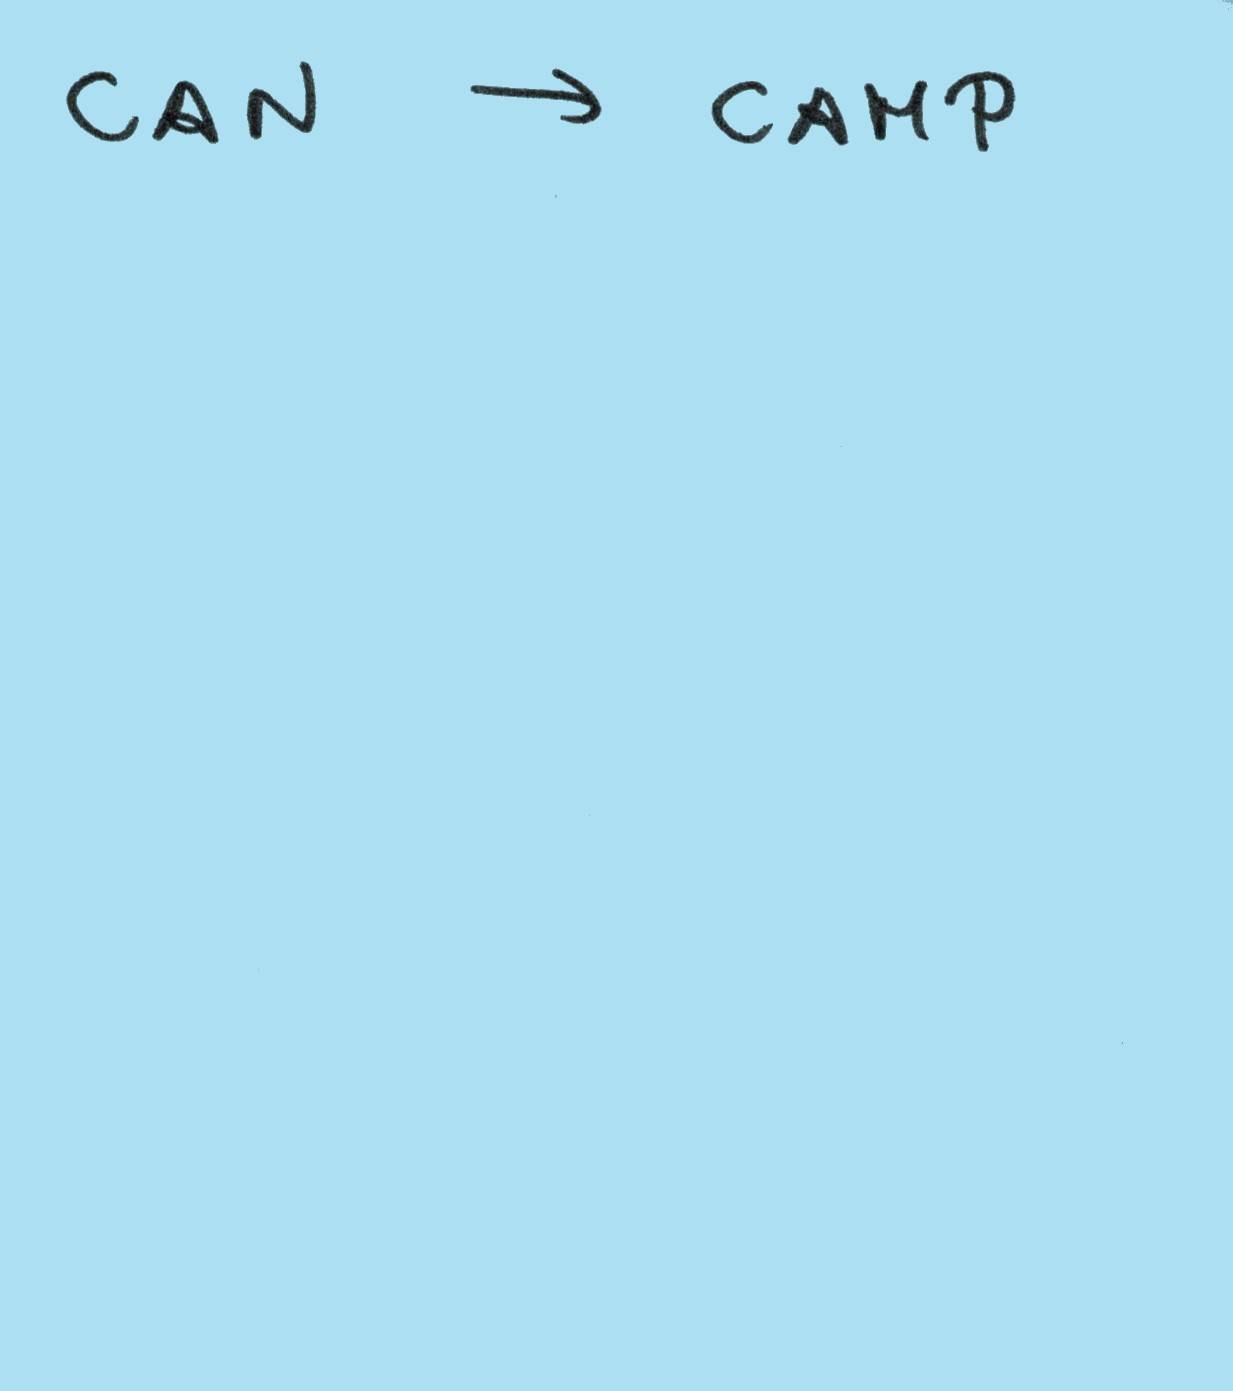 CAN → CAMP